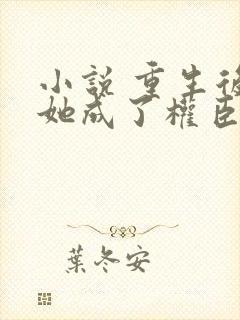 小說 重生後
她成了權臣
葉冬安